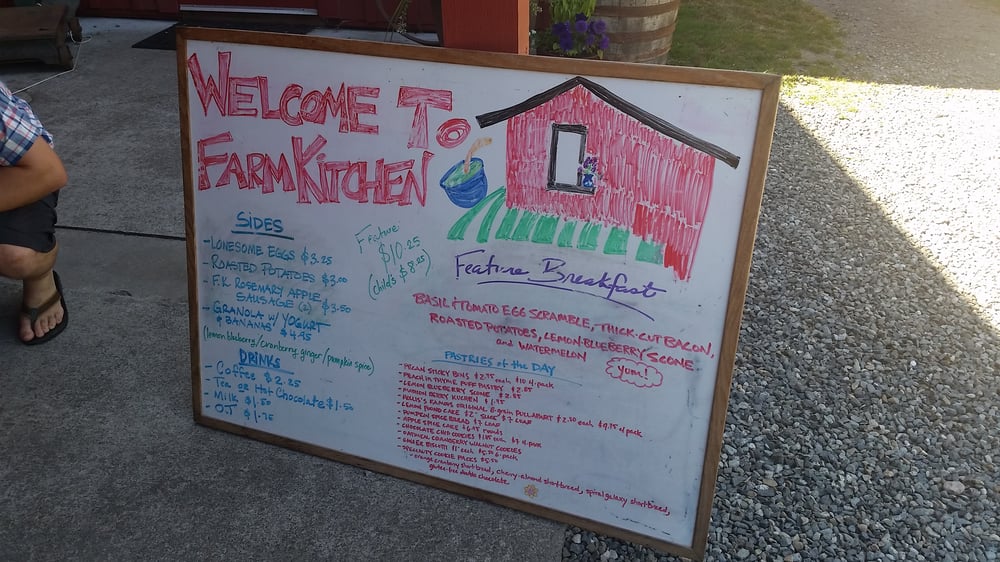 WELCOME TO
FARM KITCHEN
SIDES
- LONESOME EGGS $3.25
- ROASTED POTATOES $3.00
- F.K. ROSEMARY APPLE
SAUSAGE (2) $3.50
- GRANOLA W/ YOGURT
& BANANAS $4.95
(lemon blueberry/cranberry ginger/pumpkin spice)
DRINKS
- Coffee $2.25
- Tea or Hot Chocolate $1.50
- Milk $1.50
- OJ $1.75
Feature
$10.25
(child's $8.25)
Feature Breakfast
BASIL & TOMATO EGG SCRAMBLE, THICK-CUT BACON,
ROASTED POTATOES, LEMON-BLUEBERRY SCONE
and WATERMELON
yum!
PASTRIES of the DAY
- PECAN STICKY BUNS $2.75 each $10 4-pack
- PEACH IN THYME PUFF PASTRY $2.85
- LEMON BLUEBERRY SCONE $2.85
- BERRY KUCHEN $1.95
- FAMOUS ORIGINAL 8-grain PULLAPART $2.50 each $9.75 4-pack
- LEMON POUND CAKE $2 SLICE $7 LOAF
- PUMPKIN SPICE BREAD $7 LOAF
- APPLE SPICE CAKE rounds
- CHOCOLATE CHIP COOKIES $1.85 each $7 4-pack
- OATMEAL CRANBERRY WALNUT COOKIES
- GINGER BISCOTTI $1 each $5.50 6-pack
- SPECIALTY COOKIE PACKS $5.50
- orange cranberry shortbread, cherry-almond shortbread, spiral galaxy shortbread,
gluten-free double chocolate